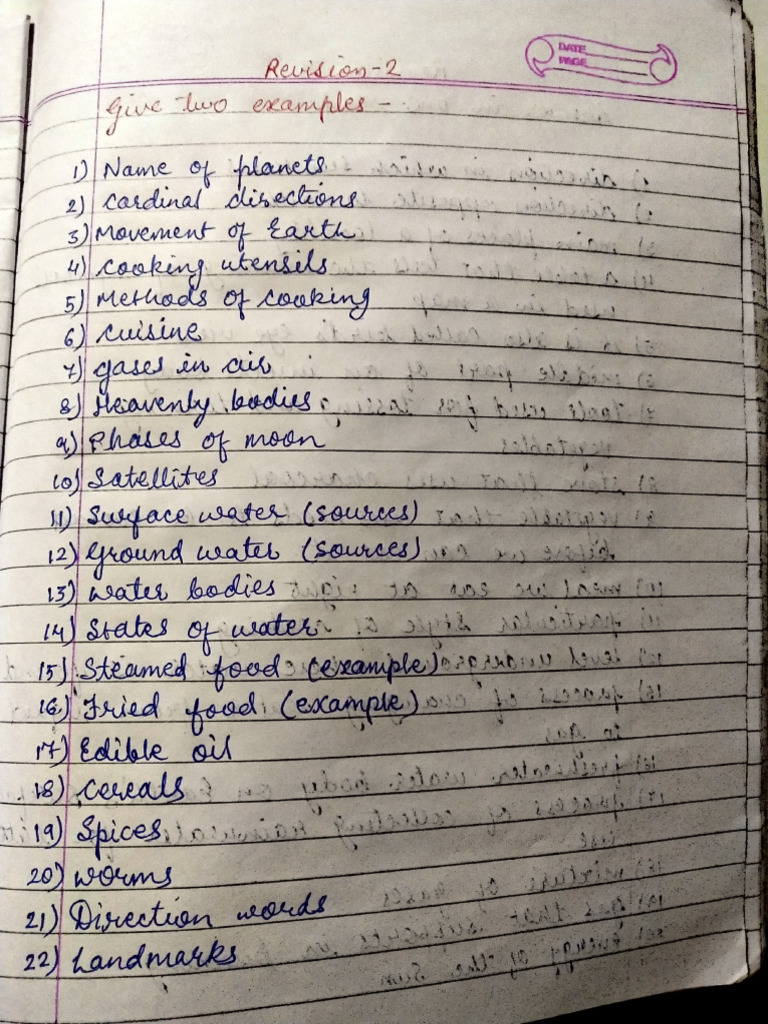 Revision-2
DATE
PAGE
Give two examples -
1) Name of planets
2) Cardinal directions
3) Movement of Earth
4) Cooking utensils
5) Methods of cooking
6) Cuisine
7) gases in air
8) Heavenly bodies
9) Phases of moon
10) Satellites
11) Surface water (sources)
12) Ground water (sources)
13) Water bodies
14) States of water
15) Steamed food (example)
16) Fried food (example)
17) Edible oil
18) Cereals
19) Spices
20) Worms
21) Direction words
22) Landmarks